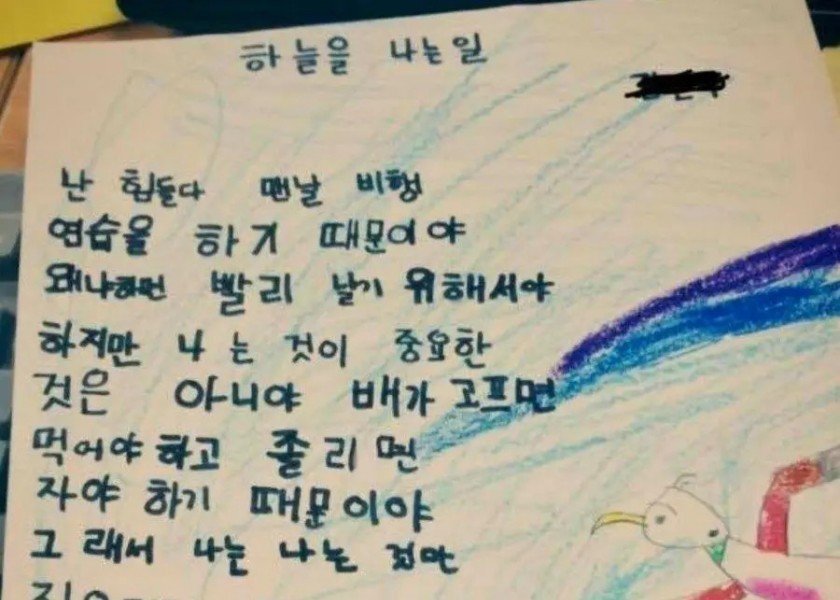 하늘을 나는일
난 힘들다 맨날 비행
연습을 하기 때문이야
왜냐하면 빨리 날기 위해서야
하지만 나는 것이 중요한
것은 아니야 배가 고프면
먹어야 하고 졸리면
자야 하기 때문이야
그래서 나는 나는 것만